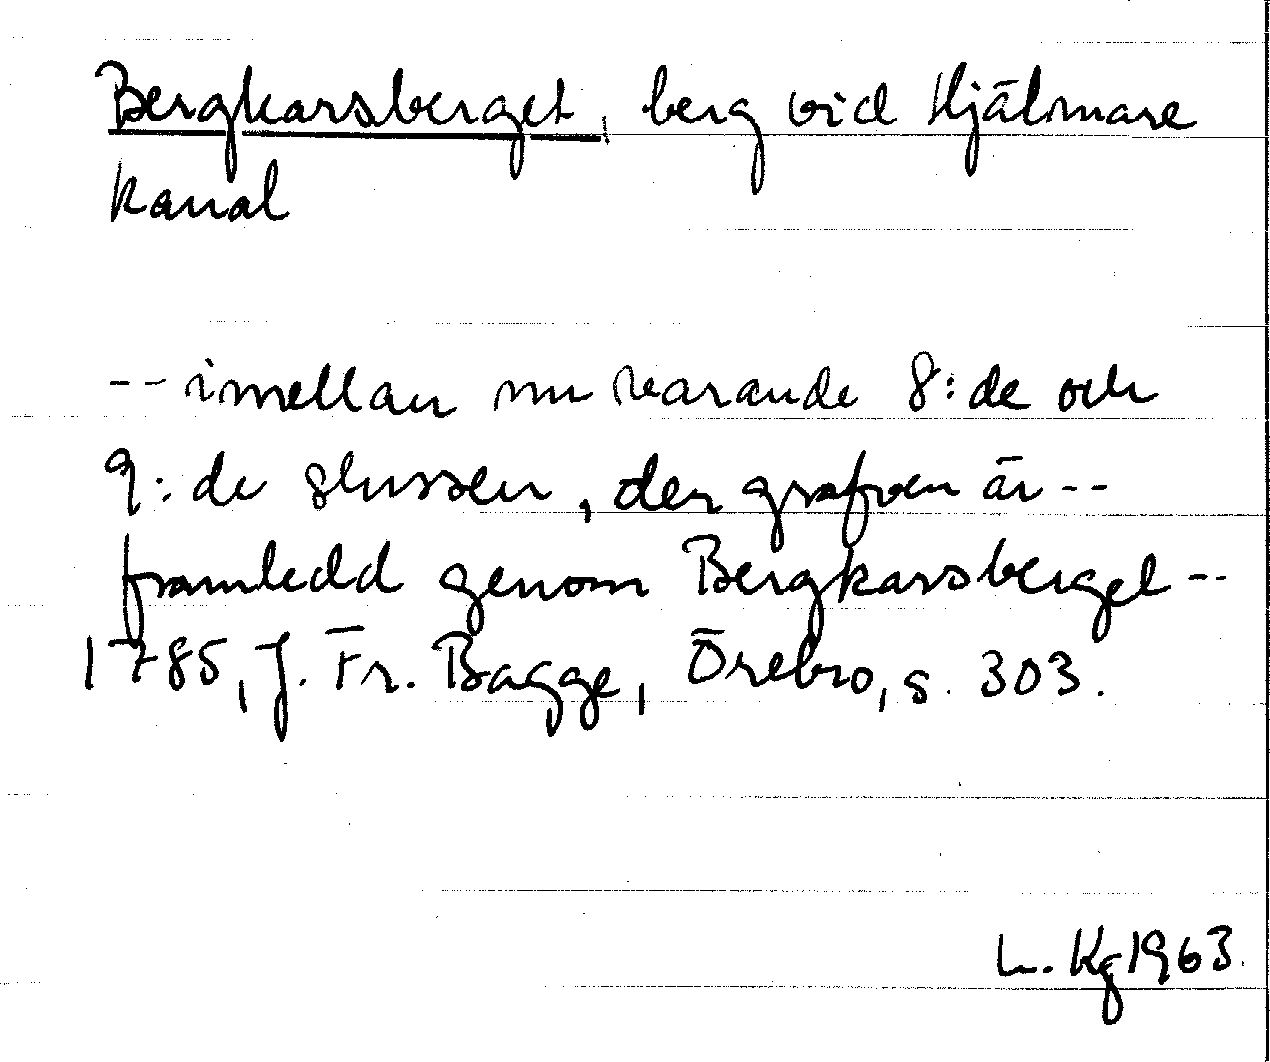 Bergkarsberget, berg vid Hjälmare
kanal
-- imellan nu varande 8:de och
9:de slussen, der grafven är --
framledd genom Bergkarsberget --
1785, J. Fr. Bagge, Örebro, s. 303.
L. Kg 1963.